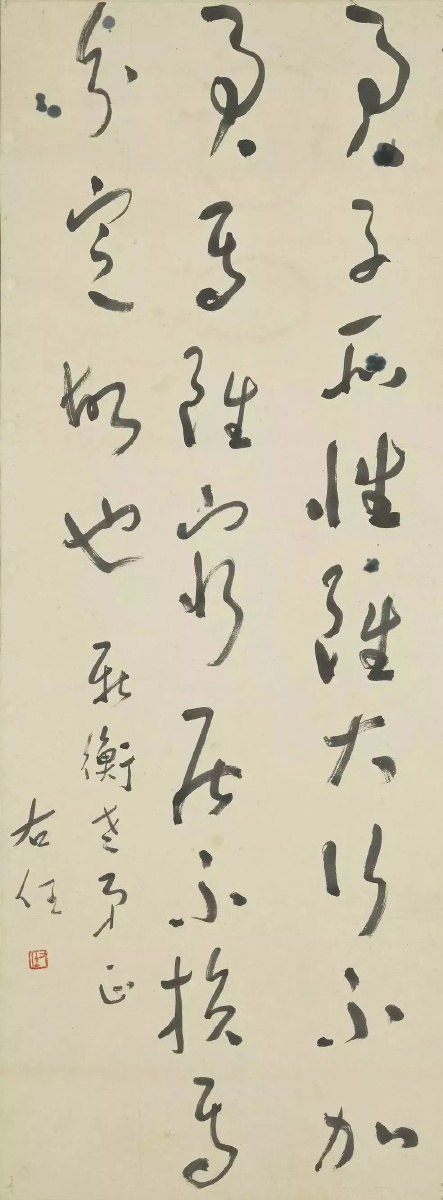 君子所性雖大行不加
君焉雖窮居不損焉
分定故也
衡老弟正
右任